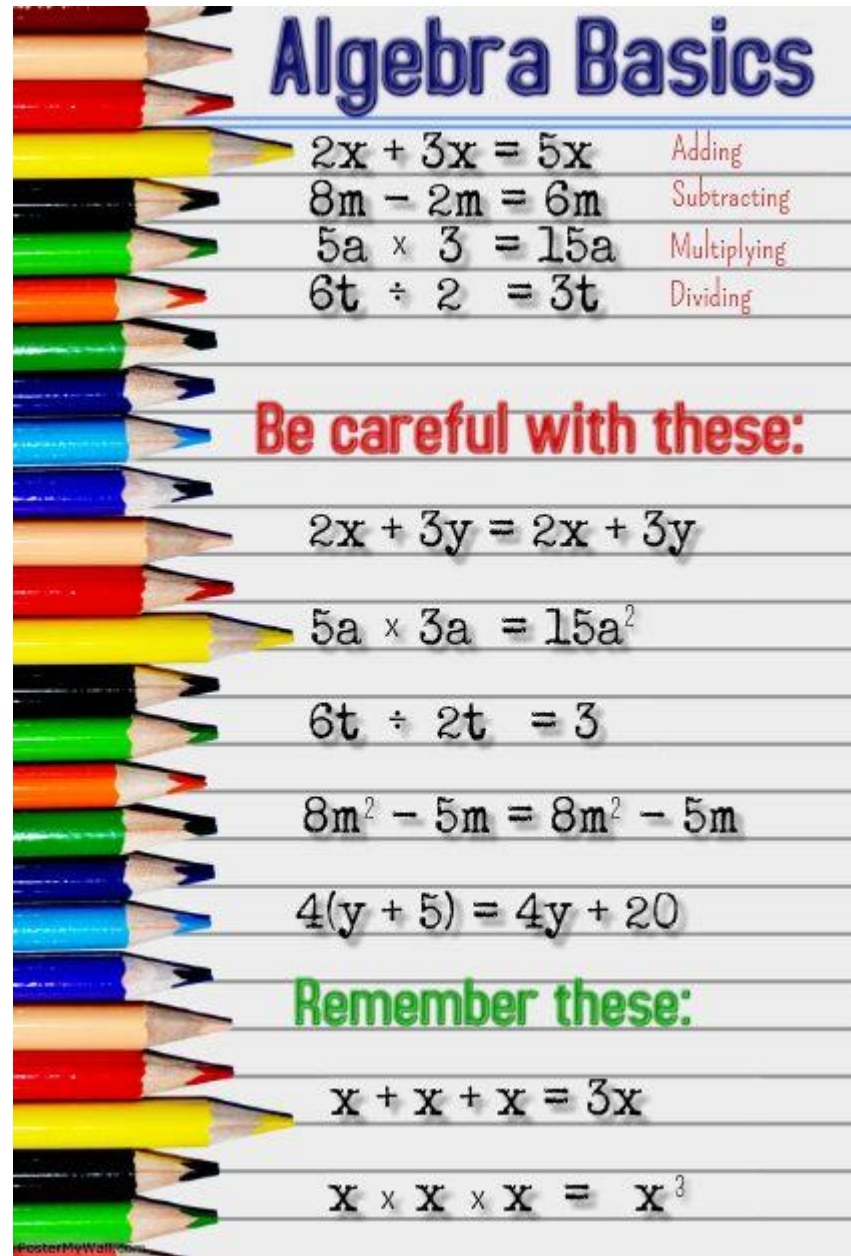 Algebra Basics
2x + 3x = 5x Adding
8m - 2m = 6m Subtracting
5a x 3 = 15a Multiplying
6t ÷ 2 = 3t Dividing
Be careful with these:
2x + 3y = 2x + 3y
5a x 3a = 15a²
6t ÷ 2t = 3
8m² - 5m = 8m² - 5m
4(y + 5) = 4y + 20
Remember these:
x + x + x = 3x
x x x x x = x³
PosterMyWall.com